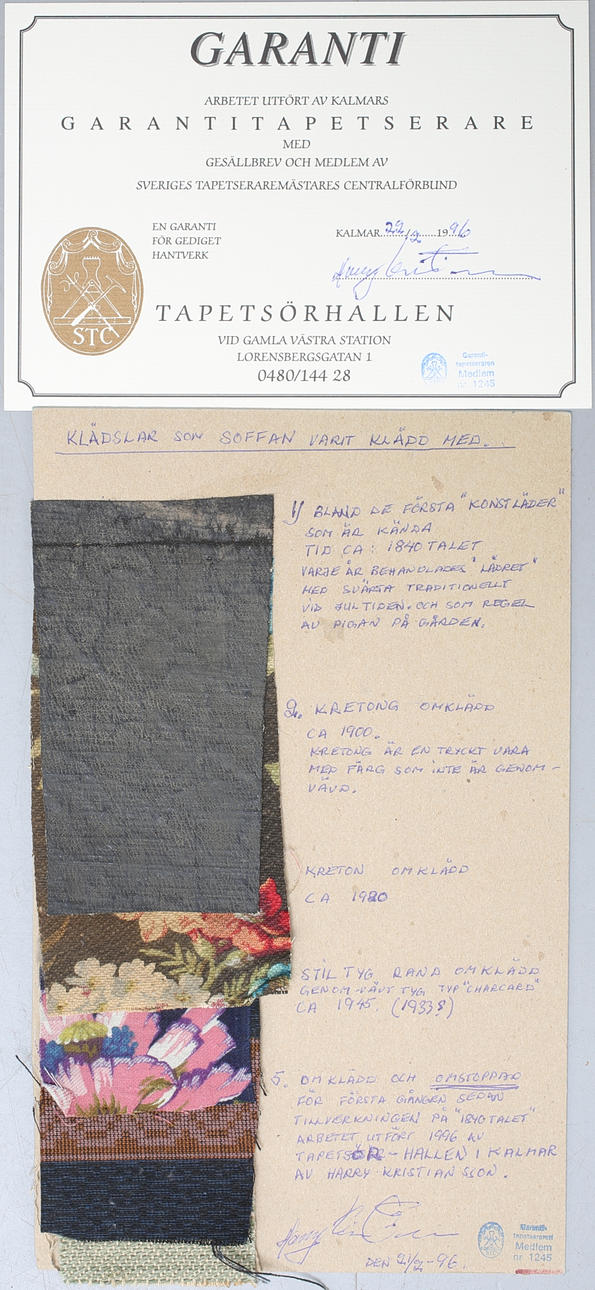 GARANTI
ARBETET UTFÖRT AV KALMARS
GARANTITAPETSERARE
MED
GESÄLLBREV OCH MEDLEM AV
SVERIGES TAPETSERAREMÄSTARES CENTRALFÖRBUND
EN GARANTI
FÖR GEDIGET
HANTVERK
KALMAR 22/2 1996
STC
TAPETSÖRHALLEN
VID GAMLA VÄSTRA STATION
LORENSBERGSGATAN 1
0480/144 28
Garanti-
tapetseraren
Medlem
nr. 1245
KLÄDSLAR SON SOFFAN VARIT KLÄDD MED...
1) BLAND DE FÖRSTA "KONSTLÄDER"
SOM ÄR KÄNDA
TID CA: 1840 TALET
VARJE ÅR BEHANDLADES "LÄDRET"
MED SVÄRTA TRADITIONELLT
VID JULTIDEN. OCH SOM REGEL
AV PIGAN PÅ GÅRDEN.
2. KRETONG OMKLÄDD
CA 1900.
KRETONG ÄR EN TRYCKT VARA
MED FÄRG SOM INTE ÄR GENOM-
VÄVD.
KRETON OMKLÄDD
CA 1920
STIL TYG RAND OMKLÄDD
GENOM-VÄVT TYG TYP "CHARCARD"
CA 1945. (1933?)
5. OMKLÄDD OCH OMSTOPPAD
FÖR FÖRSTA GÅNGEN SEDAN
TILLVERKNINGEN PÅ "1840 TALET"
ARBETET UTFÖRT 1996 AV
TAPETSÖR-HALLEN I KALMAR
AV HARRY KRISTIANSSON.
DEN 21/2-96.
Garanti-
tapetseraren
Medlem
nr 1245